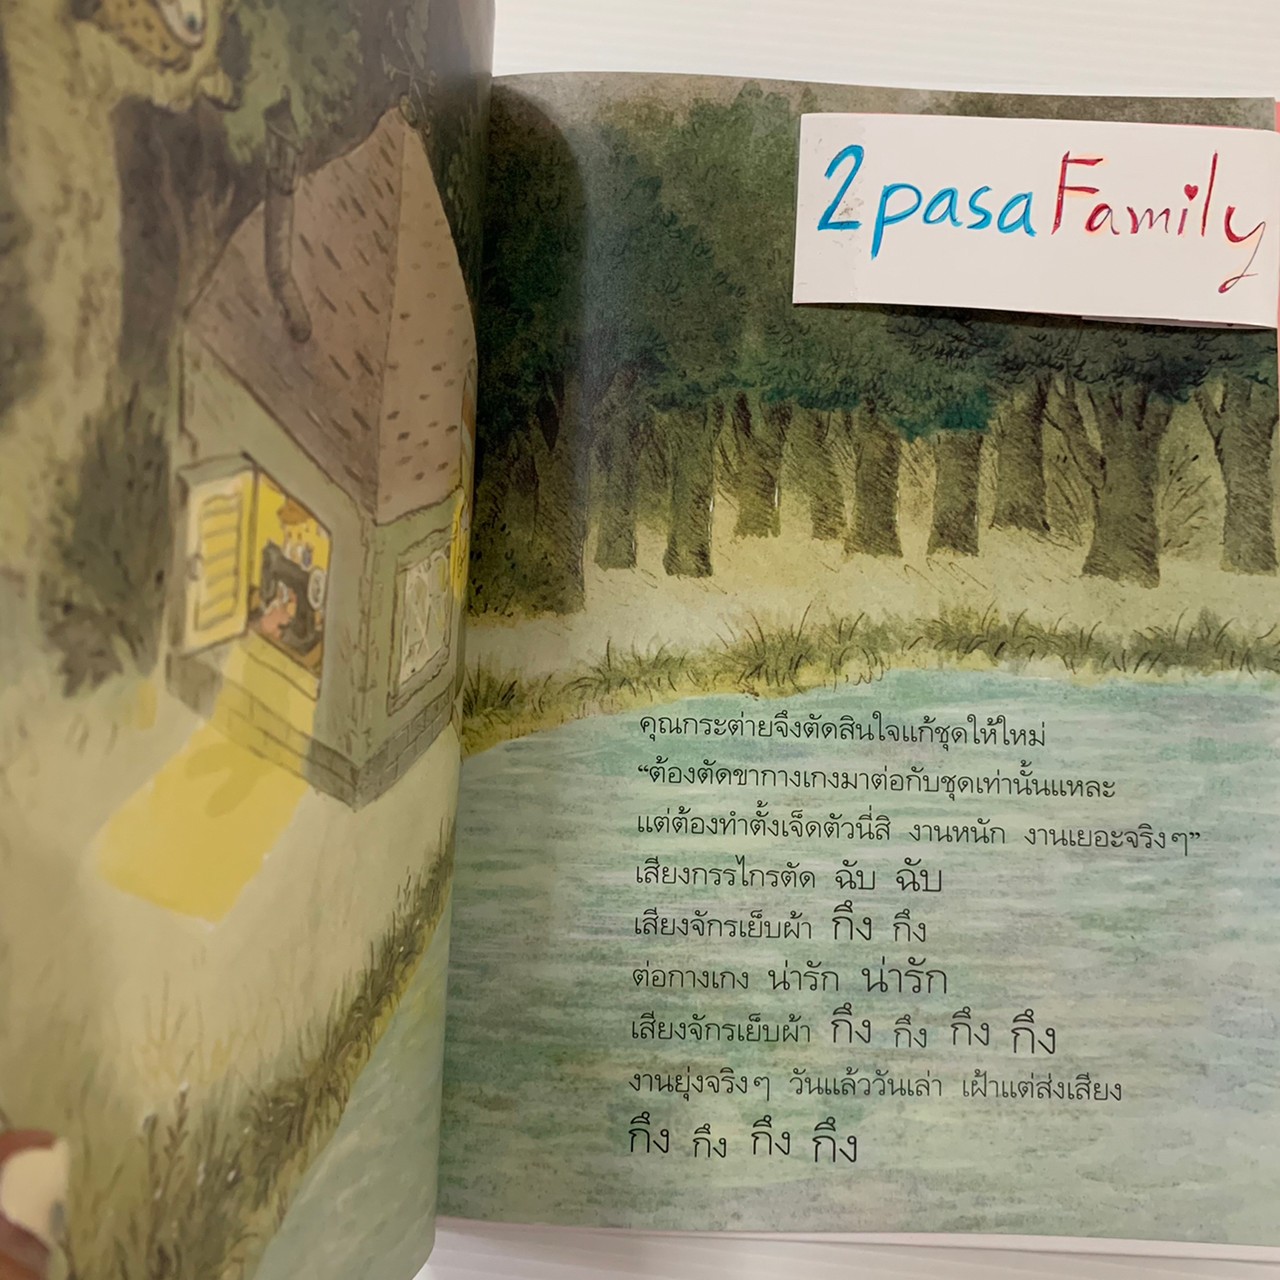 2pasaFamily
คุณกระต่ายจึงตัดสินใจแก้ชุดให้ใหม่
“ต้องตัดขากางเกงมาต่อกับชุดเท่านั้นแหละ
แต่ต้องทำตั้งเจ็ดตัวนี่สิ งานหนัก งานเยอะจริงๆ”
เสียงกรรไกรตัด ฉับ ฉับ
เสียงจักรเย็บผ้า กึง กึง
ต่อกางเกง น่ารัก น่ารัก
เสียงจักรเย็บผ้า กึง กึง กึง กึง
งานยุ่งจริงๆ วันแล้ววันเล่า เฝ้าแต่ส่งเสียง
กึง กึง กึง กึง